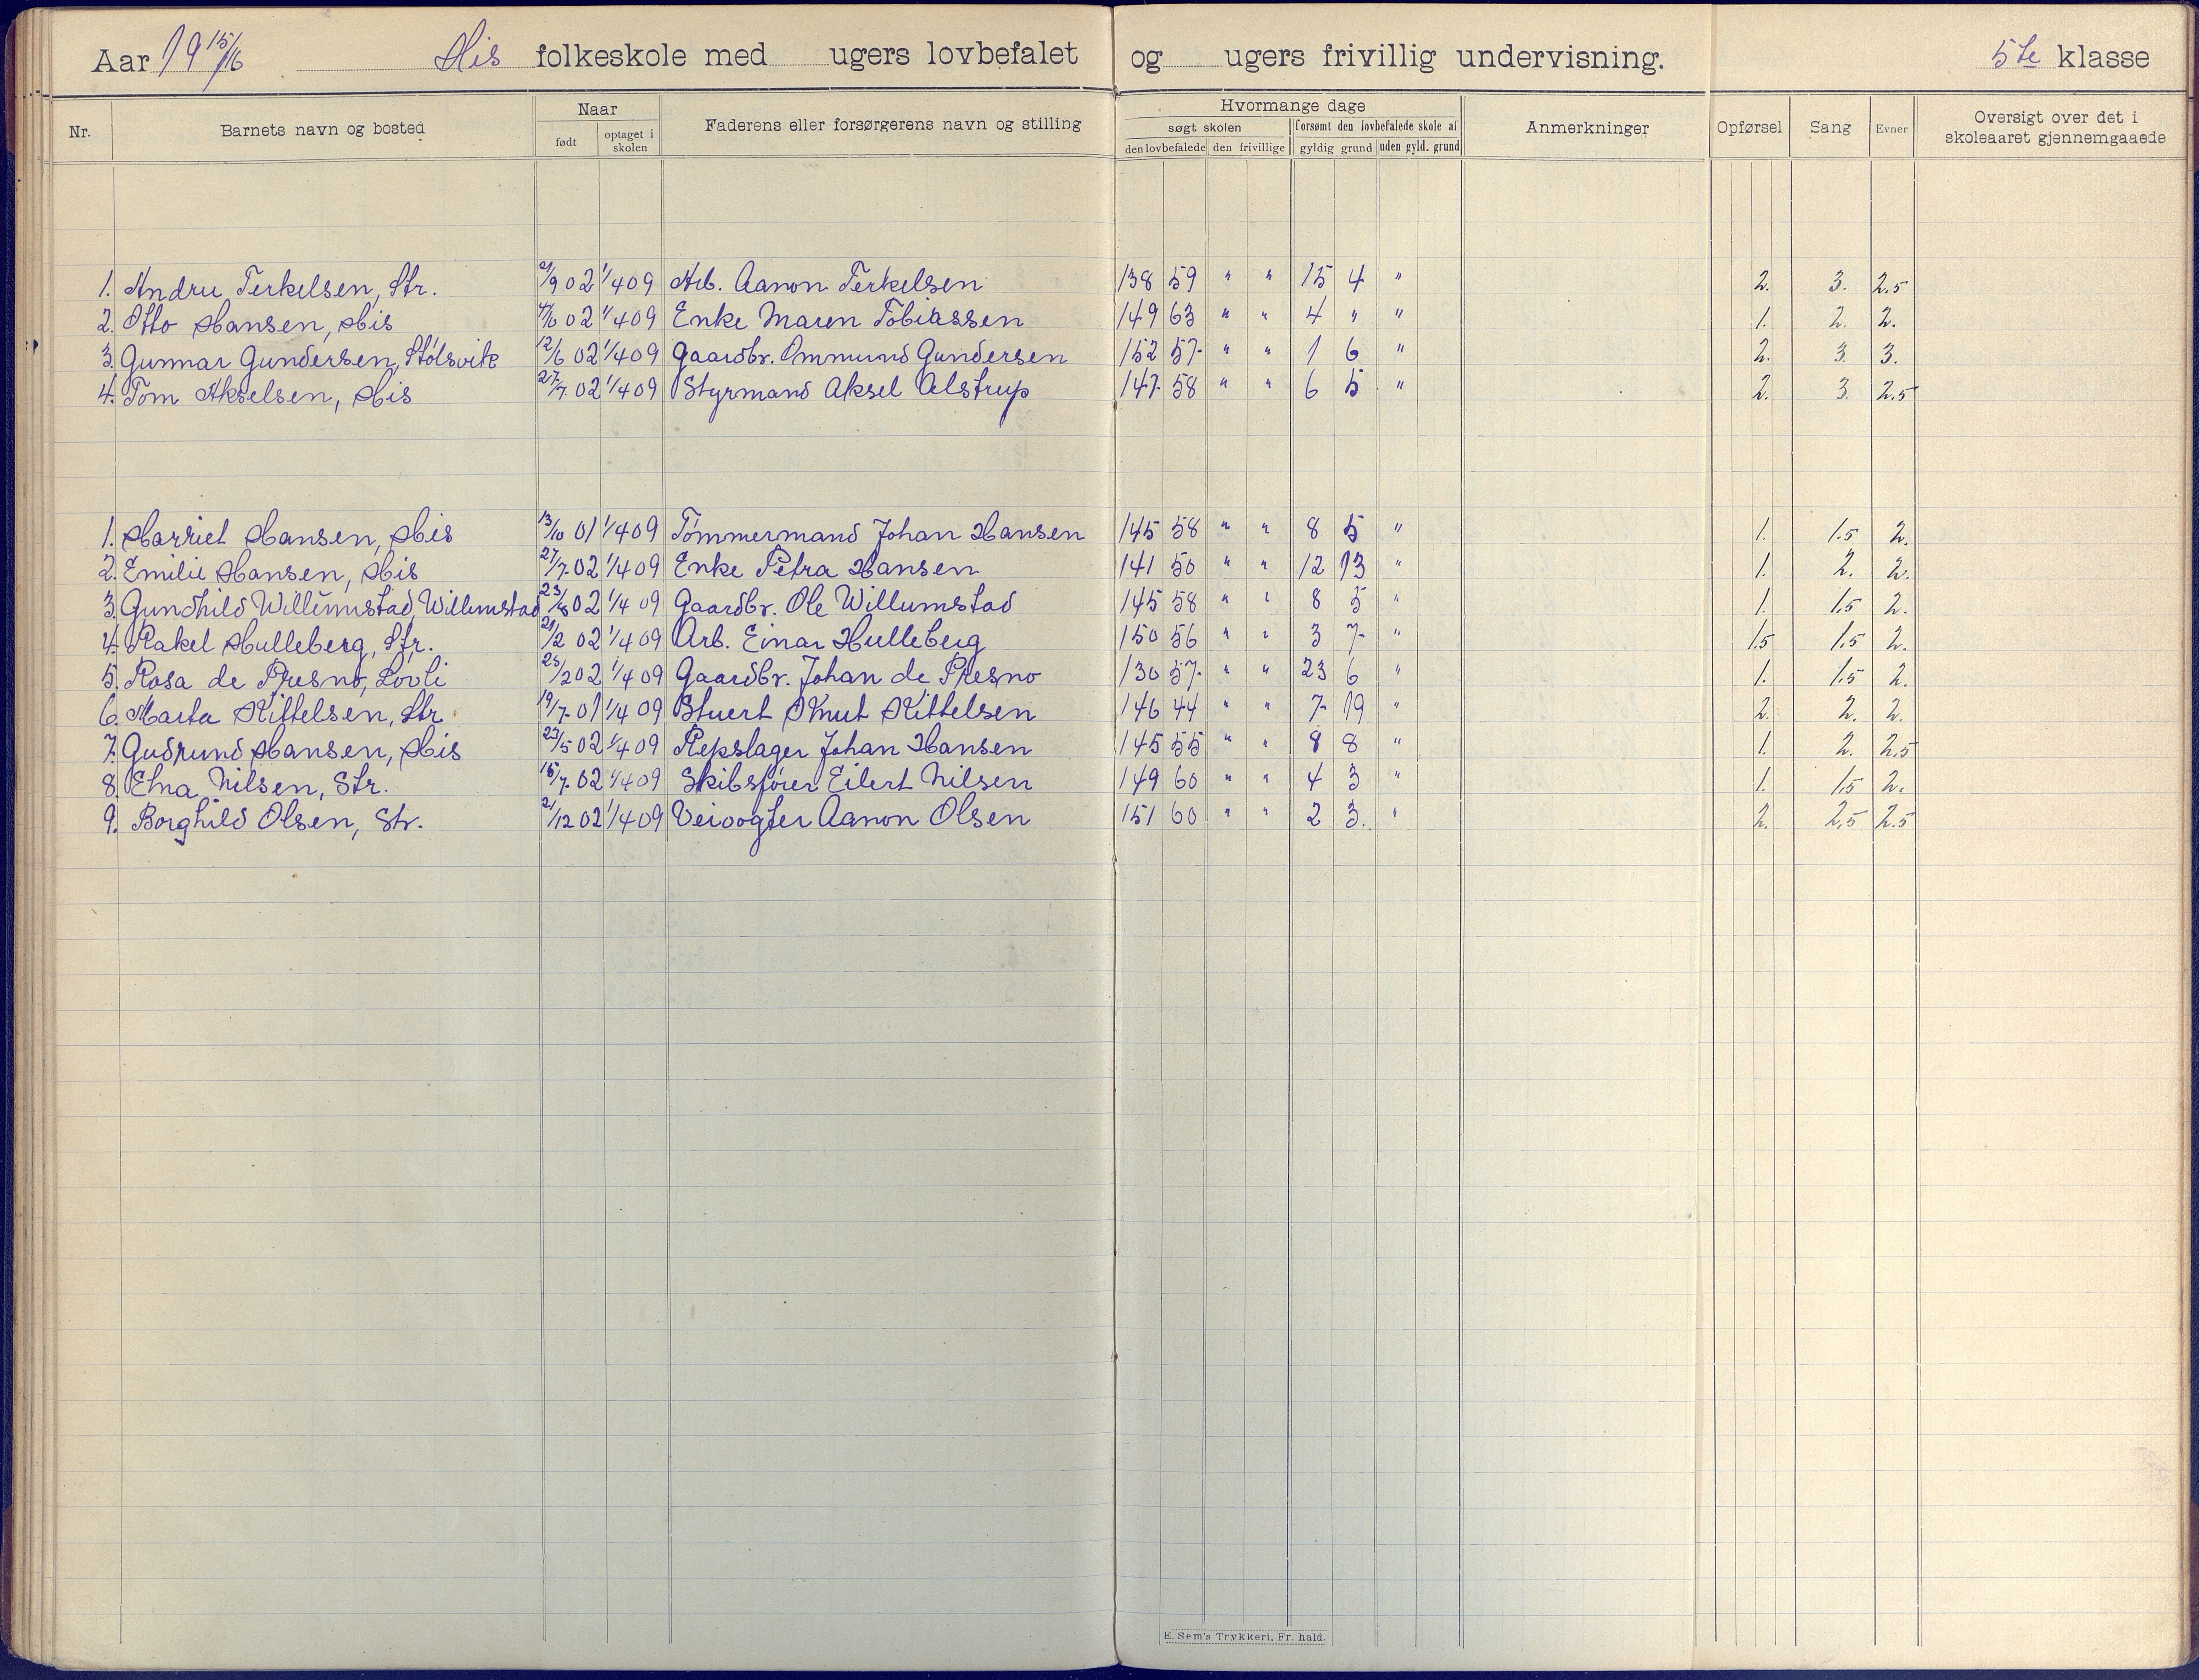 Aar 19 15/16 His folkeskole med ugers lovbefalet og ugers frivillig undervisning. 5te klasse
Nr. Barnets navn og bosted Naar født optaget i skolen Faderens eller forsørgerens navn og stilling Hvormange dage søgt skolen den lovbefalede den frivillige forsømt den lovbefalede skole af gyldig grund uden gyld. grund Anmerkninger Opførsel Sang Evner Oversigt over det i skoleaaret gjennemgaaede
1. Andru Terkelsen, Str. /9 02 1/4 09 Arb. Aanon Terkelsen 138 59 " " 15 4 " 2. 3. 2.5
2. Otto Hansen, His 02 1/4 09 Enke Maren Tobiassen 149 63 " " 4 " " 1. 2. 2.
3. Gunnar Gundersen, Stølsvik 12/6 02 1/4 09 Gaardbr. Ommund Gundersen 152 57 " " 1 6 " 2. 3. 3.
4. Tom Akselsen, His 27/7 02 1/4 09 Styrmand Aksel Alstrup 147 58 " " 6 5 " 2. 3. 2.5
1. Harriet Hansen, His 13/10 01 1/4 09 Tømmermand Johan Hansen 145 58 " " 8 5 " 1. 1.5 2.
2. Emilie Hansen, His 27/7 02 1/4 09 Enke Petra Hansen 141 50 " " 12 13 " 1. 2. 2.
3. Gundhild Willumstad, Willumstad 23/8 02 1/4 09 Gaardbr. Ole Willumstad 145 58 " " 8 5 " 1. 1.5 2.
4. Rakel Hulleberg, Str. 21/2 02 1/4 09 Arb. Einar Hulleberg 150 56 " " 3 7 " 1.5 1.5 2.
5. Rosa de Presno, Lovli 25/2 02 1/4 09 Gaardbr. Johan de Presno 130 57 " " 23 6 " 1. 1.5 2.
6. Marta Kittelsen, Str. 19/7 01 1/4 09 Stuert Knut Kittelsen 146 44 " " 7 19 " 2. 2. 2.
7. Gudrund Hansen, His 23/5 02 1/4 09 Repslager Johan Hansen 145 55 " " 8 8 " 1. 2. 2.5
8. Etna Nilsen, Str. 15/7 02 1/4 09 Skibsfører Eilert Nilsen 149 60 " " 4 3 " 1. 1.5 2.
9. Borghild Olsen, Str. 21/12 02 1/4 09 Veivogter Aanon Olsen 151 60 " " 2 3. " 2. 2.5 2.5
E. Sem's Trykkeri, Fr. hald.